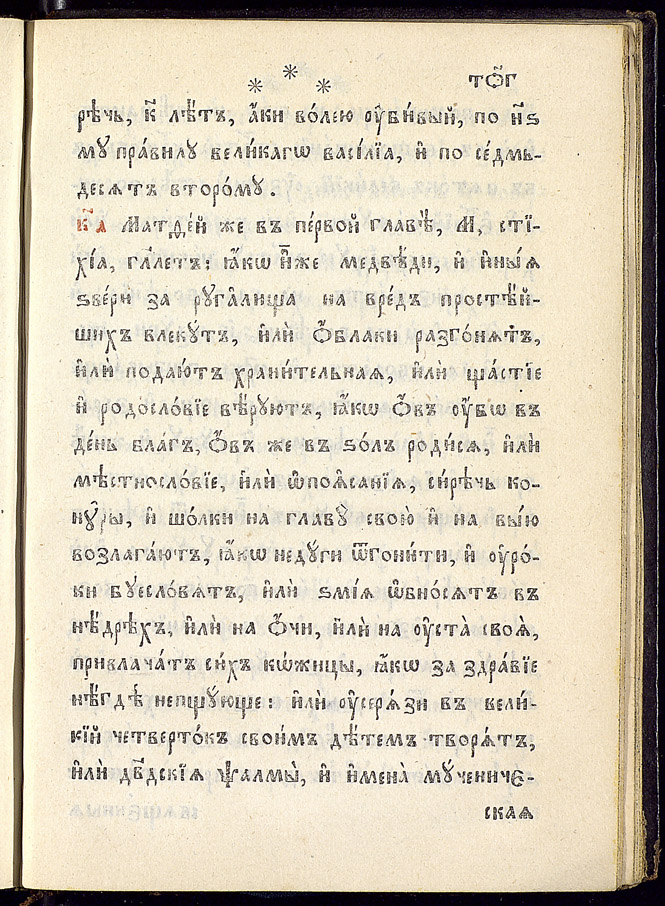 * * *
то҃г
рѣ́чь, к҃ лѣ́тъ, а҆́ки во́лею ᲂу҆би́вый, по н҃ѕ
му пра́вилу вели́кагѡ васі́лїа, и҆ по се́дмь-
десѧтъ второ́му.
к҃а Матѳе́й же въ пе́рвой главѣ̀, М, стї-
хі́а, гл҃етъ: ꙗ҆́кѡ и҆̀же медвѣ́ди, и҆ и҆ны́ѧ
ѕвѣ́ри за руга́лища на вре́дъ простѣ́й-
шихъ влеку́тъ, и҆лѝ ѻ҆́блаки разго́нѧтъ,
и҆лѝ подаю́тъ храни́тельнаѧ, и҆лѝ ща́стїе
и҆ родосло́вїе вѣ́руютъ, ꙗ҆́кѡ ѻ҆́въ ᲂу҆́бѡ въ
де́нь бла́гъ, ѻ҆́въ же въ ѕо́лъ роди́сѧ, и҆лѝ
мѣстносло́вїе, и҆лѝ ѡ҆поѧ́санїѧ, си́рѣчь ко-
ну́ры, и҆ шо́лки на главꙋ̀ свою̀ и҆ на вы́ю
возлага́ютъ, ꙗ҆́кѡ неду́ги ѿгони́ти, и҆ ᲂу҆ро́-
ки бꙋесло́вѧтъ, и҆лѝ ѕмїѧ̀ ѡ҆бно́сѧтъ въ
нѣ́дрѣхъ, и҆лѝ на ѻ҆́чи, и҆лѝ на ᲂу҆ста̀ своѧ̀,
привлача́тъ си́хъ кѡ́жицы, ꙗ҆́кѡ за здра́вїе
нѣ́гдѣ непщꙋ́юще: и҆лѝ ᲂу҆серѧ́зи въ вели́-
кїй четверто́къ свои́мъ дѣ́темъ творѧ́тъ,
и҆лѝ дв҃дскїѧ ѱалмы̀, и҆ и҆мена̀ мꙋчениче-
скаѧ